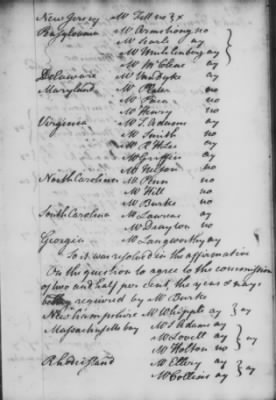 New Jersey Mr Fell no } x
Pensylvania Mr Armstrong no
Mr Searle ay
Mr Muhlenberg ay
Mr McClene ay
Delaware Mr Van Dyke ay
Maryland Mr Plater no
Mr Paca no
Mr Henry no
Virginia Mr T. Adams ay
Mr Smith no
Mr R H Lee ay
Mr Griffin ay
Mr Nelson no
North Carolina Mr Penn no
Mr Hill no
Mr Burke no
South Carolina Mr Laurens ay
Mr Drayton no
Georgia Mr Langworthy ay
So it was resolved in the affirmative
On the question to agree to the commission
of two and half per Cent, the yeas & nays
required by Mr Burke
New hampshire Mr Whipple ay } ay
Massachusetts bay Mr S Adams ay
Mr Lovell ay } ay
Mr Holton no
Rhode island Mr Ellery ay
Mr Collins ay } ay